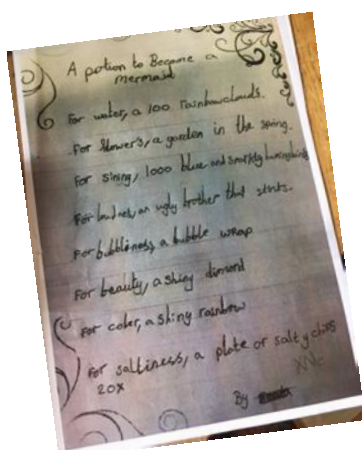 A potion to Become a
mermaid
For water, a 100 rainbowclouds.
For flowers, a garden in the spring.
For sining, 1000 blue and snorkldy
For loudnes, an ugly brother that stinks.
For bubbliness, a bubble wrap
For beauty, a shiny dimond
For coler, a shiny rainbow
For saltiness, a plate or salty chips
20x
By